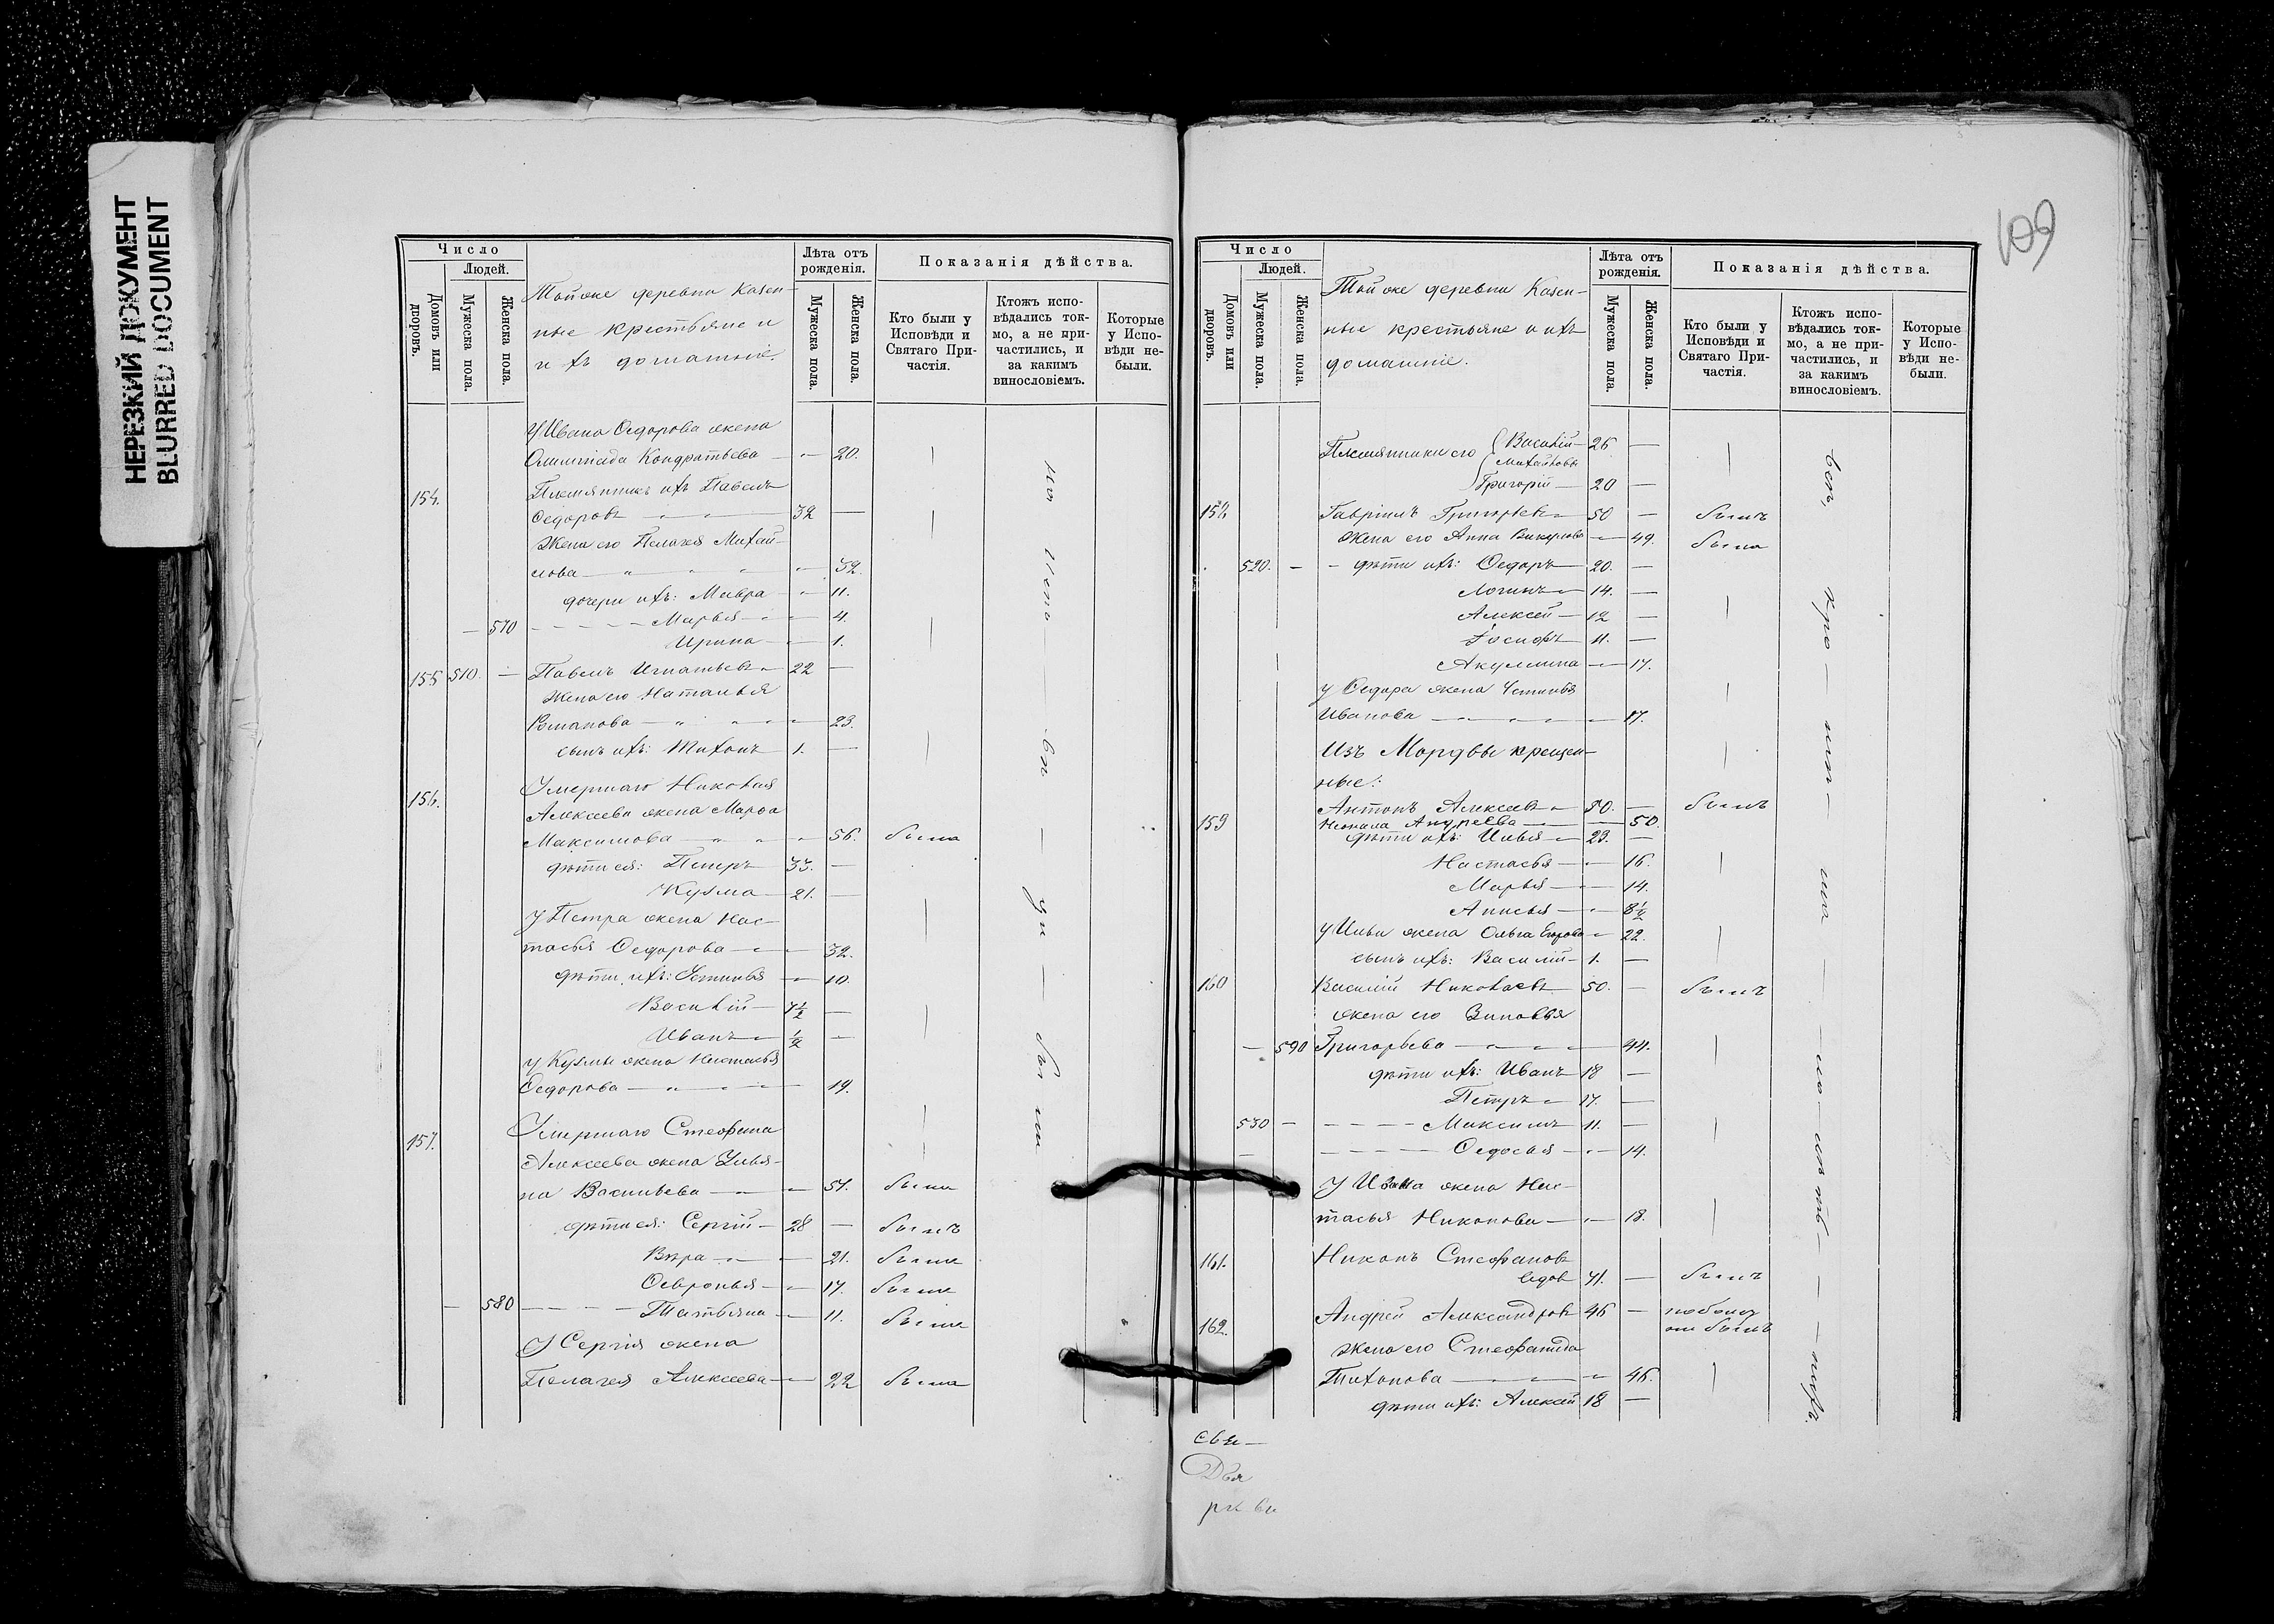 НЕРЕЗКИЙ ДОКУМЕНТ
BLURRED DOCUMENT
Число
Людей.
Домовъ или дворовъ.
Мужеска пола.
Женска пола.
Тойже деревни казен-
ные крестьяне и
ихъ домашніе.
Лѣта отъ рожденія.
Мужеска пола.
Женска пола.
Показанія дѣйства.
Кто были у Исповѣди и Святаго При-частія.
Ктожъ испо-вѣдались ток-мо, а не при-частились, и за какимъ винословіемъ.
Которые у Испо-вѣди не-были.
У Ивана Ѳедорова жена
Олимпіада Кондратьева — 20.
154. Племянникъ ихъ Павелъ
Ѳедоровъ 32 —
Жена его Пелагея Михай-
лова — 32.
дочери ихъ: Мавра — 11.
— 570 Марья — 4.
Ирина — 1.
155 510. — Павелъ Игнатьевъ 22 —
Жена его Наталья
Романова — 23.
сынъ ихъ: Тихонъ 1. —
156. Умершаго Николая
Алексеева жена Марфа
Максимова — 56. была
дѣти ея: Петръ 33. —
Кузма 21. —
У Петра жена Нас-
тасья Ѳедорова — 32.
дѣти ихъ: Устинья — 10.
Василій 7½ —
Иванъ ½ —
У Кузмы жена Настасья
Ѳедорова — 19.
157. Умершаго Стефана
Алексеева жена Улья-
на Васильева — 51. была
дѣти ея: Сергій 28 — былъ
Вѣра — 21. была
Ѳевронья — 17. была
— 580 Татьяна — 11. была
У Сергія жена
Пелагея Алексеева — 22 была
109
Число
Людей.
Домовъ или дворовъ.
Мужеска пола.
Женска пола.
Тойже деревни казен-
ные крестьяне и ихъ
домашніе.
Лѣта отъ рожденія.
Мужеска пола.
Женска пола.
Показанія дѣйства.
Кто были у Исповѣди и Святаго При-частія.
Ктожъ испо-вѣдались ток-мо, а не при-частились, и за какимъ винословіемъ.
Которые у Испо-вѣди не-были.
Племянники его Василій 26 —
Михайловы
Григорій 20 —
Гавріилъ Григорьевъ 50 — былъ
Жена его Анна Викулова — 49. была
520. — дѣти ихъ: Ѳедоръ 20. —
Логинъ 14. —
Алексей 12 —
Іосифъ 11. —
Акулина — 17.
У Ѳедора жена Устинья
Иванова — 17.
Изъ Мордвы крещен-
ные:
Антонъ Алексеевъ 50. — былъ
159 Неонила Андреева — 50.
дѣти ихъ: Илья 23. —
Настасья — 16.
Марья — 14.
Анисья — 8½
У Ильи жена Ольга Егорова — 22.
сынъ ихъ: Василій 1. —
160 Василій Николаевъ 50. — былъ
жена его Зиновья
— 590 Григорьева — 44.
дѣти ихъ: Иванъ 18 —
Петръ 17. —
530 — Максимъ 11. —
Ѳедосья — 14.
У Ивана жена Нас-
тасья Никонова — 18.
161. Никонъ Стефановъ
вдов 71. — былъ
162. Андрей Александровъ 46 —
Жена его Стефанида
Тихонова — 46.
дѣти ихъ: Алексей 18 —